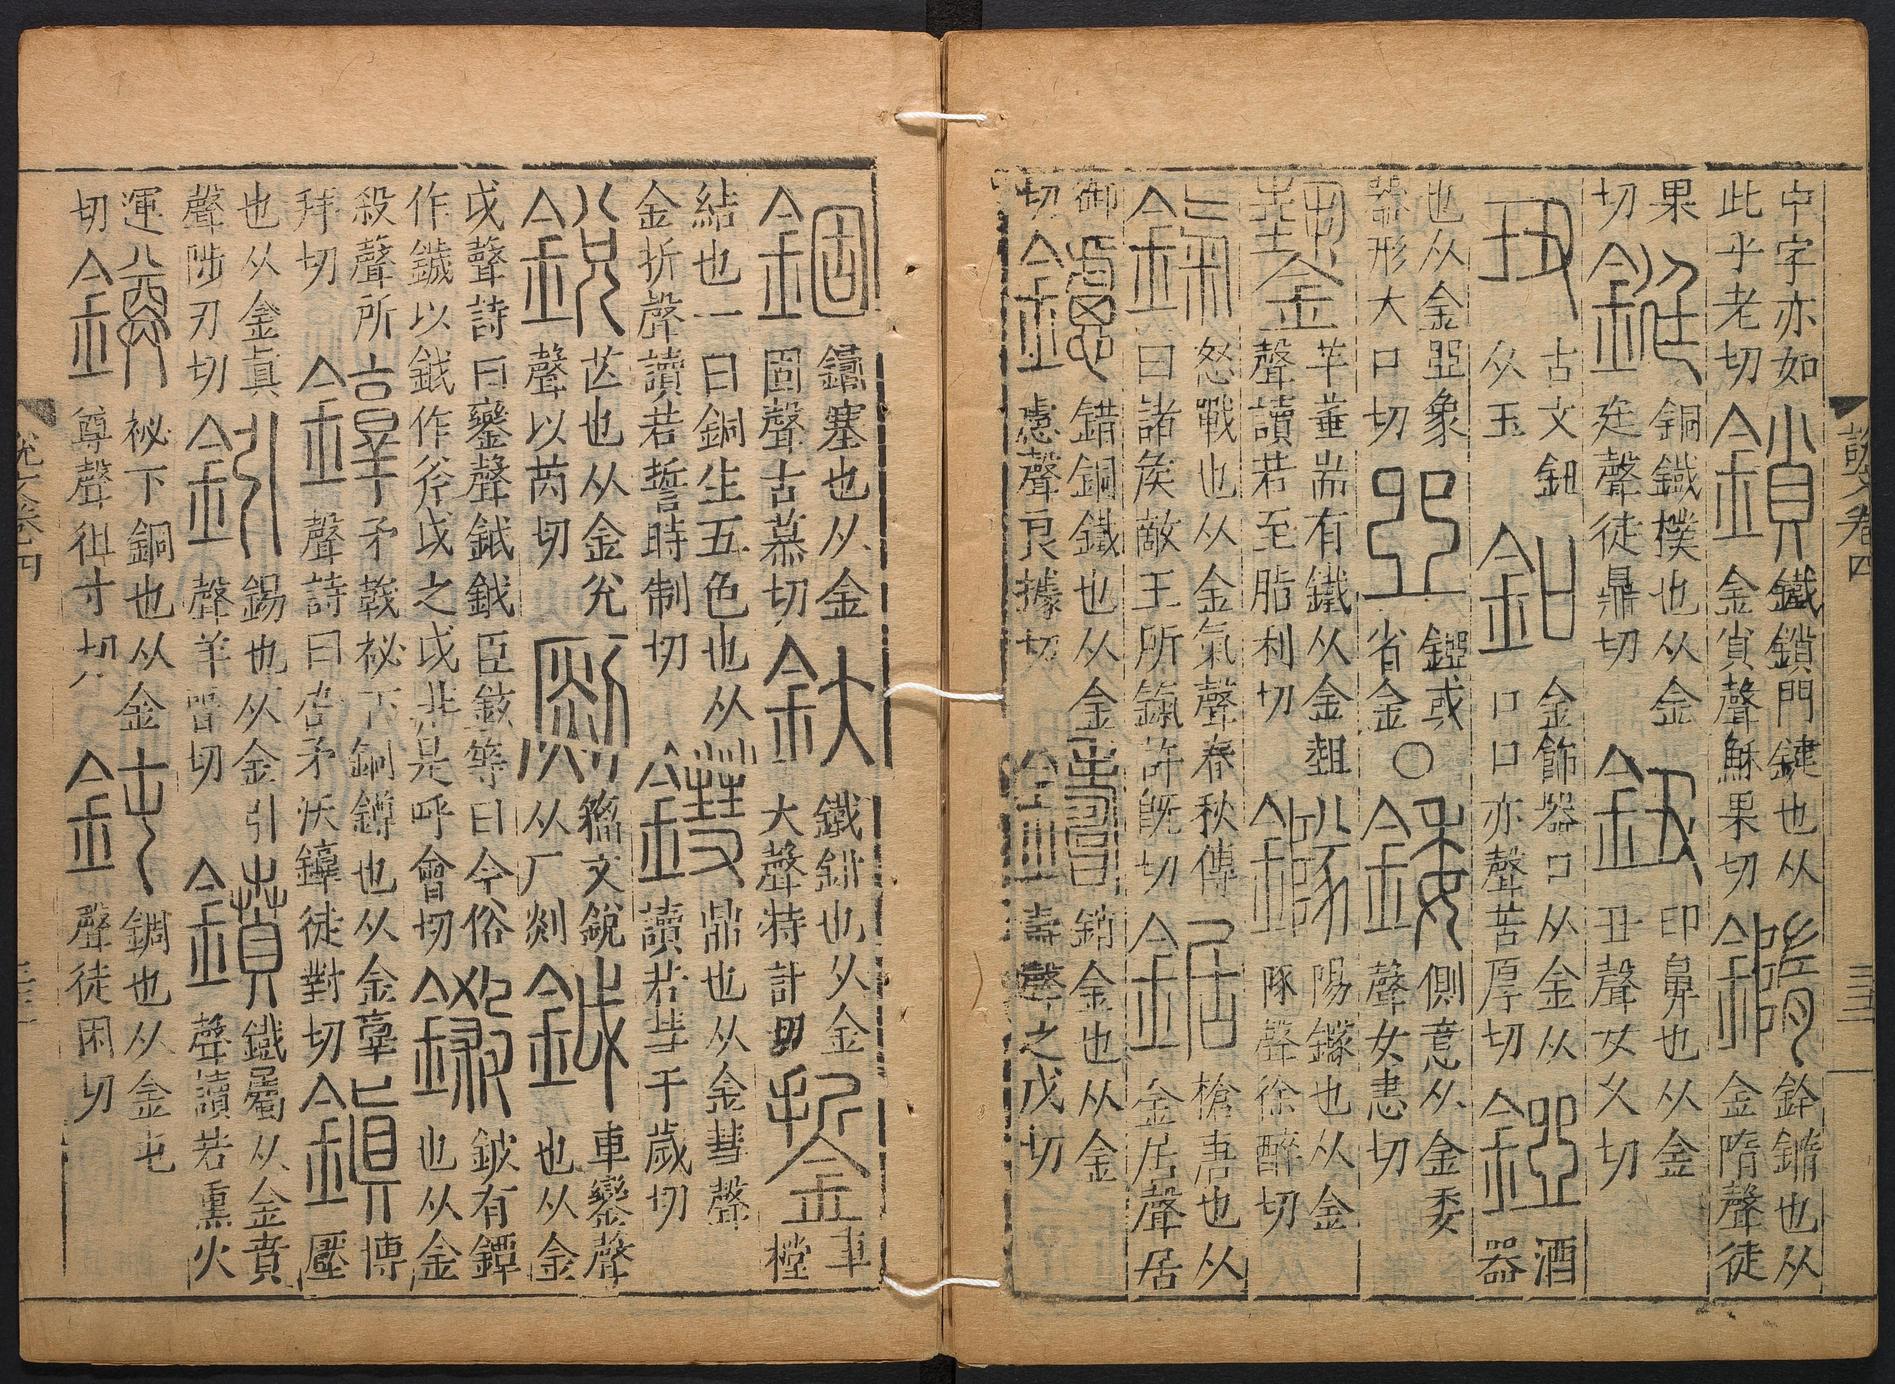 說文卷四
中字亦如
此乎老切
鎖
鐵鎖門鍵也从
金𧴪聲穌果切
䥯
鈐䥯也从
金隋聲徒
果
切
鋌
銅鐵樸也从金
廷聲徒鼎切
鈕
印鼻也从金
丑聲女久切
古文鈕
从玉
釦
金飾器口从金从
口口亦聲苦厚切
酒
器
也从金亞象
器形大口切
或
省金○
錗
側意从金委
聲女恚切
羊箠耑有鐵从金
聲讀若至脂利切
鐆
陽鐆也从金
㒸聲徐醉切
鎎
怒戰也从金氣聲春秋傳
曰諸矦敵王所鎎許旣切
鋸
槍唐也从
金居聲居
御
切
鑢
錯銅鐵也从金
慮聲良據切
鑄
銷金也从金
壽聲之戍切
錮
鑄塞也从金
固聲古慕切
釱
鐵鉗也从金
大聲特計切
銴
車
樘
結也一曰銅生五色也从
金折聲讀若誓時制切
鏏
鼎也从金彗聲
讀若彗于歲切
銳
芒也从金兌
聲以芮切
籒文銳
从厂剡
鉞
車鑾聲
也从金
戉聲詩曰鑾聲鉞鉞臣鉉等曰今俗
作鐬以鉞作斧戉之戉非是呼會切
鎩
鈹有鐔
也从金
殺聲所
拜切
矛戟柲下銅鐏也从金𦎫
聲詩曰厹矛沃錞徒對切
鎮
博
壓
也从金眞
聲陟刃切
鈏
錫也从金引
聲羊晉切
鐼
鐵屬从金賁
聲讀若熏火
運
切
鐏
柲下銅也从金
尊聲徂寸切
鈍
錭也从金屯
聲徒困切